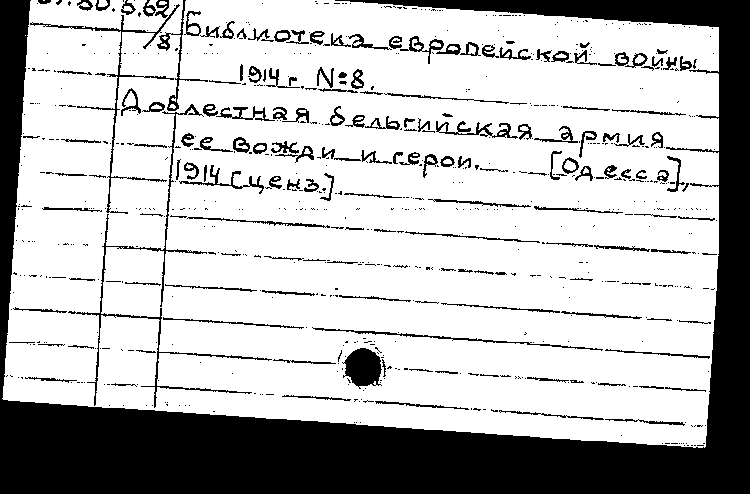 5.62/8. Библиотека европейской войны
1914 г. №8.
Доблестная бельгийская армия
ее вожди и герои. [Одесса],
1914 [ценз.].